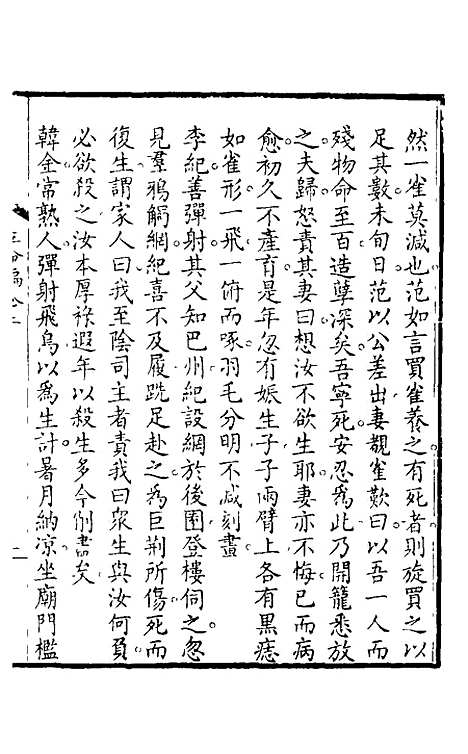 然一雀莫減也范如言買雀養之有死者則旋買之以
足其數未旬日范以公差出妻覩雀歎曰以吾一人而
殘物命至百造孽深矣吾寧死安忍爲此乃開籠悉放
之夫歸怒責其妻曰想汝不欲生耶妻亦不悔已而病
愈初久不產育是年忽有娠生子子兩臂上各有黑痣
如雀形一飛一俯而啄羽毛分明不減刻畫
李紀善彈射其父知巴州紀設網於後園登樓伺之忽
見羣鴉觸網紀喜不及履跣足赴之爲巨荆所傷死而
復生謂家人曰我至陰司主者責我曰衆生與汝何負
必欲殺之汝本厚祿遐年以殺生多今削盡矣
韓金常熟人彈射飛鳥以爲生計暑月納凉坐廟門檻
二